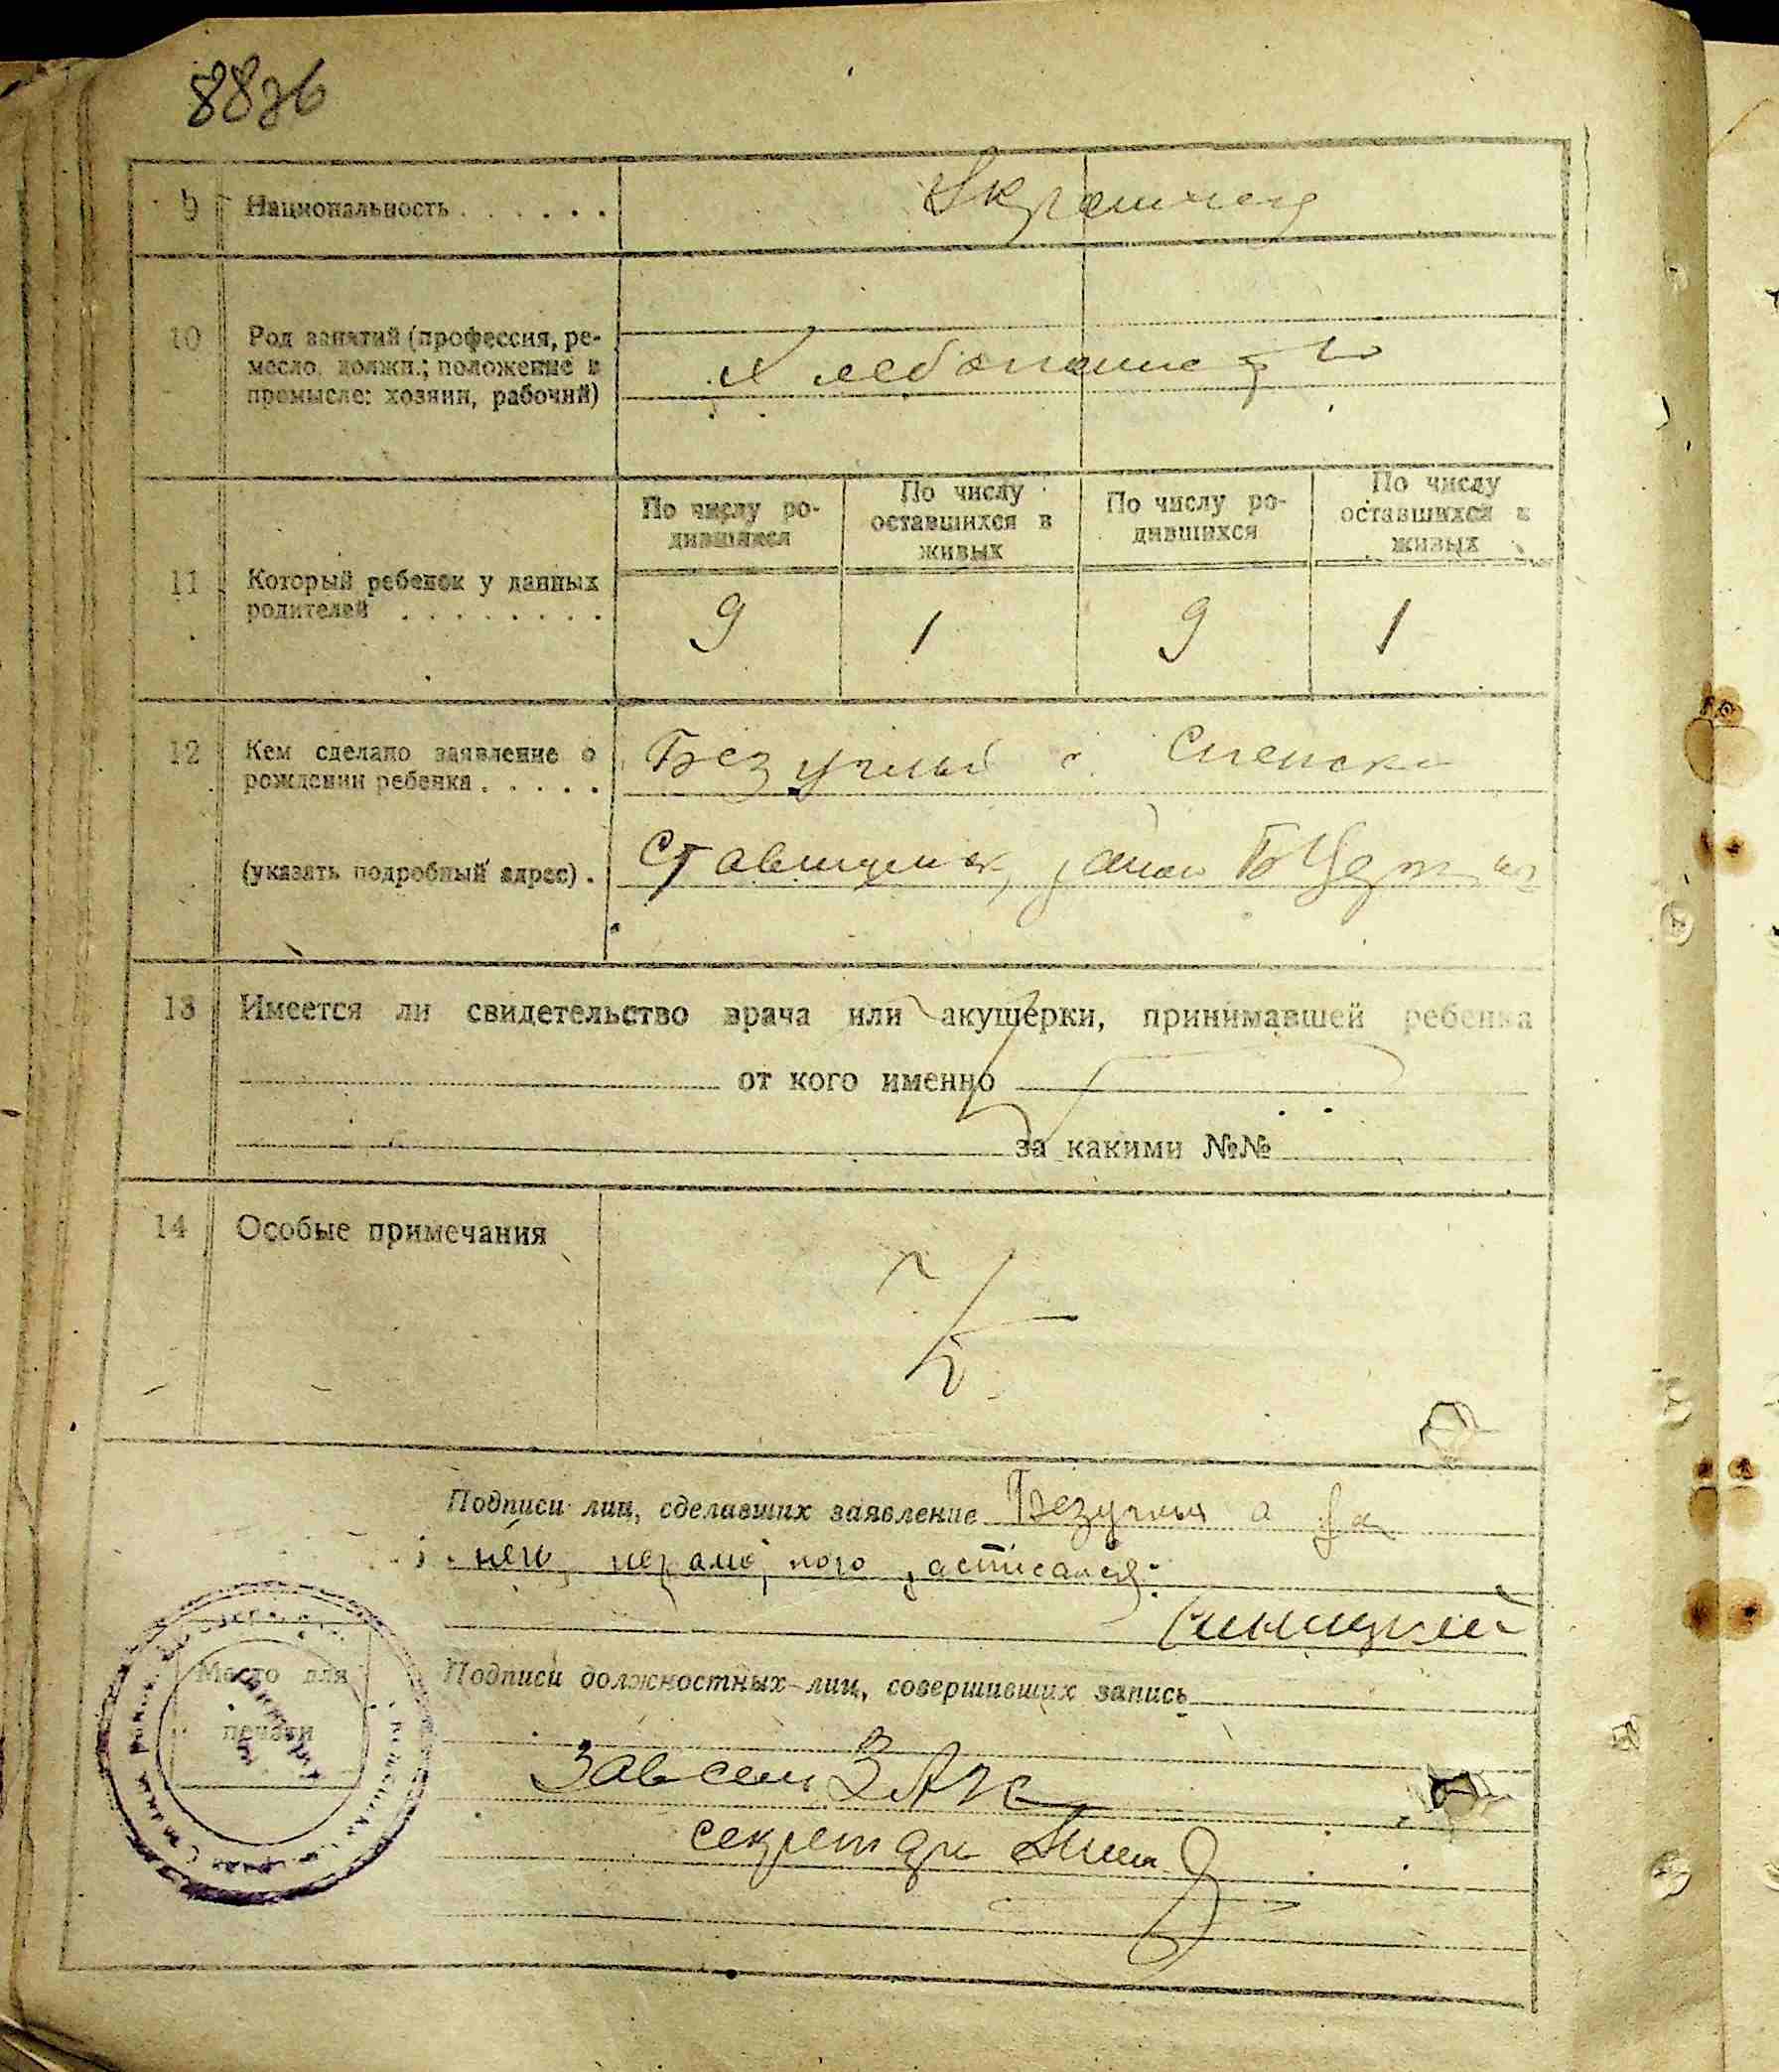 9 Национальность
10 Род занятий (профессия, ре-
месло, должн.; положение в
промысле: хозяин, рабочий)
Хлебопашество
11 Который ребенок у данных
родителей
По числу ро-
дившихся
По числу
оставшихся в
живых
По числу ро-
дившихся
По числу
оставшихся в
живых
9 1 9 1
12 Кем сделано заявление о
рождении ребенка
Безуглый с.
(указать подробный адрес).
БЦерк
13 Имеется ли свидетельство врача или акушерки, принимавшей ребенка
от кого именно
за какими №№
14 Особые примечания
Подписи лиц, сделавших заявление Безуглый а за
него расписался:
Синицкий
Место для
печати
Подписи должностных лиц, совершивших запись
Завсем ЗАГС
секретарь